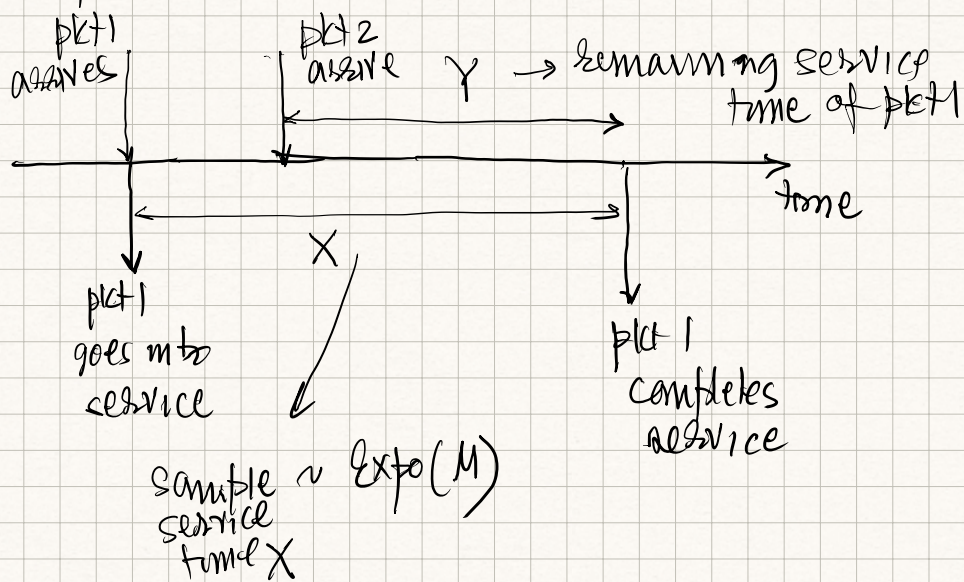 pkt1
arrives
pkt2
arrive
Y → remaining service
time of pkt1
time
X
pkt1
goes into
service
pkt 1
completes
service
sample ~ Expo(M)
service
time X